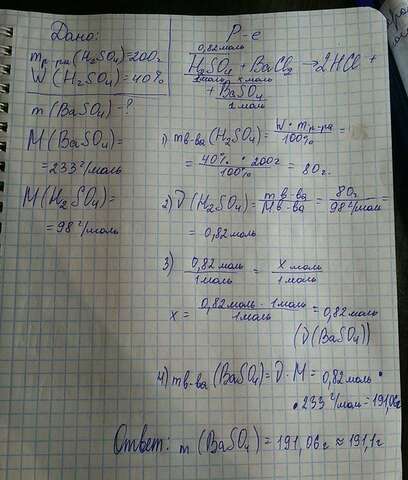 Дано:
m р-ра (H2SO4)=200г
W (H2SO4)=40%
m (BaSO4)-?
M(BaSO4)=
=233 г/моль
M(H2SO4)=
=98 г/моль
Р-е
0,82 моль x моль
H2SO4 + BaCl2 → 2HCl +
1 моль
+ BaSO4
1 моль
1) m в-ва (H2SO4) = W · m р-ра / 100% =
= 40% · 200г / 100% = 80г.
2) ν (H2SO4) = m в-ва / M в-ва = 80г / 98 г/моль =
= 0,82 моль
3) 0,82 моль / 1 моль = x моль / 1 моль
x = 0,82 моль · 1 моль / 1 моль = 0,82 моль
(ν(BaSO4))
4) m в-ва (BaSO4)= ν · M = 0,82 моль ·
· 233 г/моль = 191,06г
Ответ: m (BaSO4) = 191,06г ≈ 191,1г